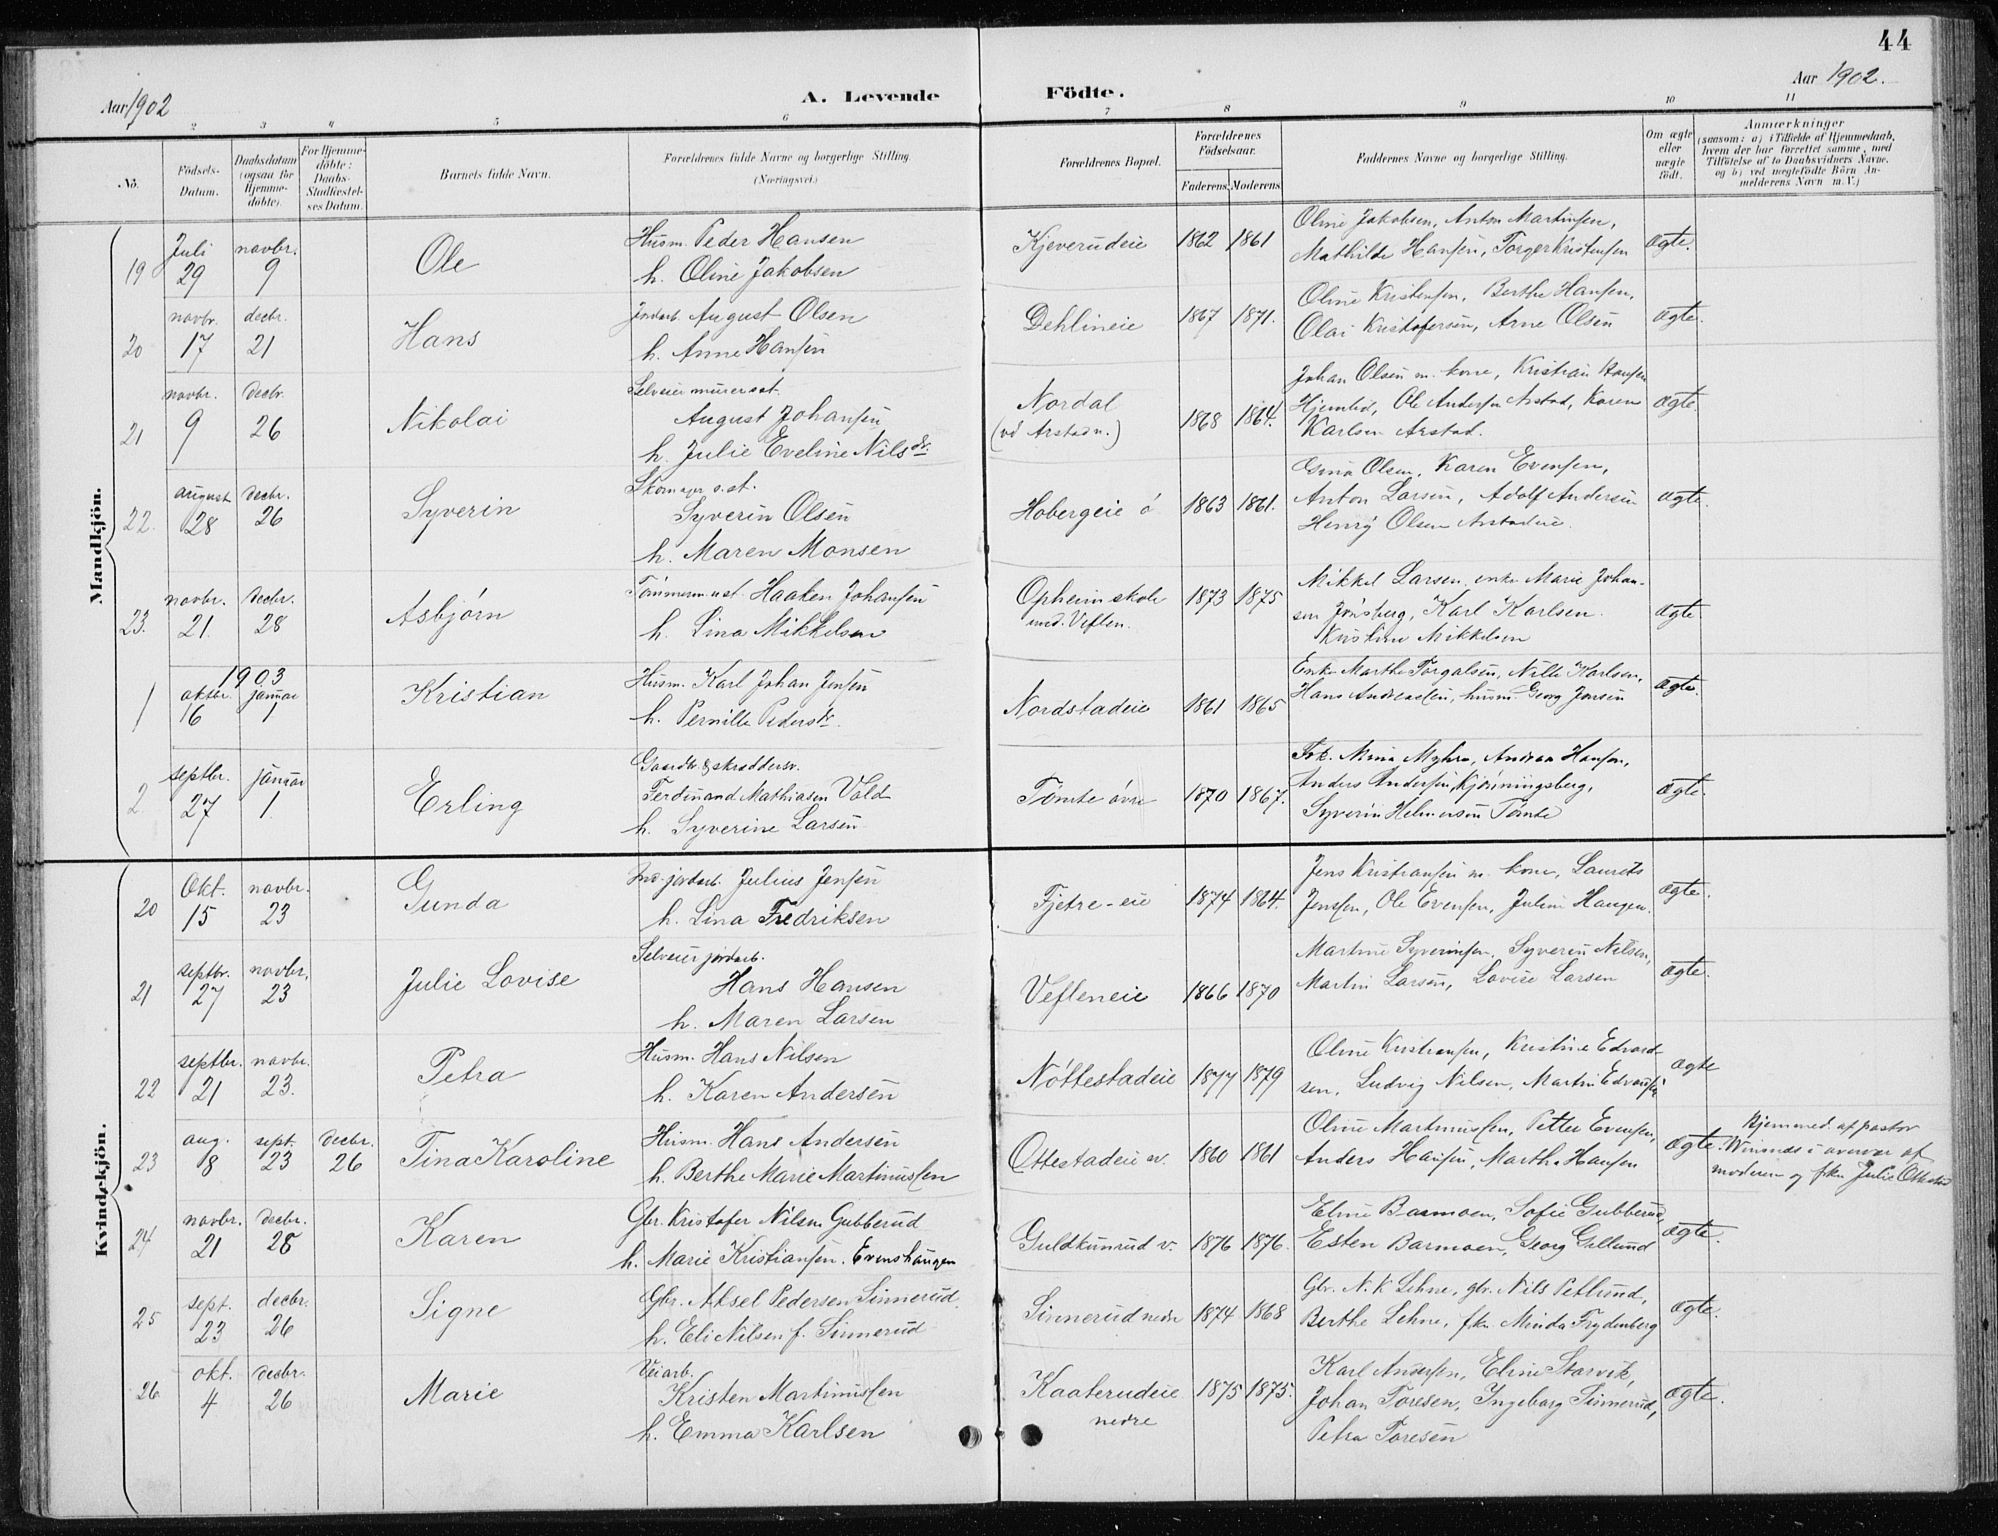 44
Aar 1902
A. Levende Födte.
Aar 1902.
2 3 4 5 6 7 8 9 10 11
No.
Födsels-Datum.
Daabsdatum (ogsaa for Hjemme-döbte).
For Hjemme-döbte: Daabs-Stadfæstel-ses Datum.
Barnets fulde Navn.
Forældrenes fulde Navne og borgerlige Stilling. (Næringsvei.)
Forældrenes Bopæl.
Forældrenes Födselsaar.
Faderens. Moderens.
Faddernes Navne og borgerlige Stilling.
Om ægte eller uægte født.
Anmærkninger
(saasom: a) i Tilfælde af Hjemmedaab, hvem der har forrettet samme, med Tilföielse af to Daabsvidners Navne, og b) ved uægtefödte Börn An-melderens Navn m. V.)
Mandkjön.
19 Juli 29 novbr. 9 Ole
Husm. Peder Hansen
h. Oline Jakobsen
Kjeverudeie 1862 1861
Oline Jakobsen, Anton Martinsen,
Mathilde Hansen, Torger Kristensen
ægte.
20 novbr. 17 decbr. 21 Hans
Jordarb. August Olsen
h. Anne Hansen
Dehlineie 1867 1871.
Oline Kristensen, Berthe Hansen,
Olai Kristofersen, Arne Olsen
ægte.
21 novbr. 9 decbr. 26 Nikolai
Selveier murer
August Johansen
h. Julie Eveline Nilsdtr.
Nordal
(vd Arstad n.)
1868 1864.
Johan Olsen m. kone, Kristian Hansen
Hjemlid, Ole Andersen Arstad, Karen
Karlsen Arstad.
ægte.
22. august 28 decbr. 26 Syverin
Skomager
Syverin Olsen
h. Maren Monsen
Hobergeie ö 1863 1861.
Olsen, Karen Evensen,
Anton Larsen, Adolf Andersen
Henry Olsen Arstadeie.
ægte.
23. novbr. 21. decbr. 28 Asbjørn
Tømmerm. Haaken Johansen
h. Lina Mikkelsen
Opheim skole
und. Veflen.
1873 1875
Mikkel Larsen, enke Marie Johan-
sen Jønsberg, Karl Karlsen.
Kristine Mikkelsen
ægte.
1903
1 oktbr. 16 januar 1 Kristian
Husm. Karl Johan Jensen
h. Pernille Pedersdtr.
Nordstadeie 1861 1865
Enke Marthe Torgalsen, Nille Karlsen,
Hans Andreassen, husm. Georg Jonsen
ægte.
2 septbr. 27 januar 1. Erling
Gaardbr. & skræddersv.
Ferdinand Mathiasen Vold
h. Syverine Larsen
Tømte øvre 1870 1867.
Frk. Nina Myhre, Andrea Hansen,
Anders Andersen Kjønningsberg,
Syverin Helmersen Tømte
ægte.
Kvindekjön.
20 Okt. 15 novbr. 23 Gunda
Ind. jordarb. Julius Jensen
h. Lina Fredriksen
Fjetre-eie 1874 1864.
Jens Kristiansen m. kone, Laurits
Jensen, Ole Evensen, Julius Haugen.
ægte.
21 septbr. 27 novbr. 23 Julie Lovise
Selveier jordarb.
Hans Hansen
h. Maren Larsen
Vefleneie 1866 1870
Martine Syverinsen, Syverin Nilsen,
Martin Larsen, Lovise Larsen
ægte.
22 septbr. 21 novbr. 23. Petra
Husm. Hans Nilsen
h. Karen Andersen
Nøttestadeie 1877 1879
Oline Kristiansen, Kristine Edvard-
sen, Ludvig Nilsen, Martin Edvardsen
ægte
23 aug. 18 sept. 23 decbr. 26 Tina Karoline
Husm. Hans Andersen
h. Berthe Marie Martinussen
Ottestadeie n. 1860 1861
Oline Martinussen, Petter Evensen,
Anders Hansen, Marthe Hansen
ægte.
Hjemmed. af pastor
Winsnes i overvær af
moderen og frkn Julie Ottestad
24 novbr. 21 decbr. 28 Karen
Gbr. Kristofer Nilsen Gubberud
h. Marie Kristiansen. Evenshaugen
Guldkunrud v. 1876 1876.
Eline Barmoen, Sofie Gubberud,
Esten Barmoen, Georg Gullund
ægte.
25 sept. 23 decbr. 26 Signe
Gbr. Aksel Pedersen Sinnerud.
h. Eli Nilsen f. Sinnerud
Sinnerud nedre 1874 1868
Gbr. N. K. Lehne, gbr. Nils Petlund,
Berthe Lehne, frkn Minda Frydenberg
ægte.
26 okt. 4 decbr. 26 Marie
Veiarb.
Kristen Martinussen
h. Emma Karlsen
Kaaterudeie
nedre
1875 1875.
Karl Andersen, Eline Storvik,
Johan Toresen, Ingeborg Sinnerud,
Petra Toresen
ægte.